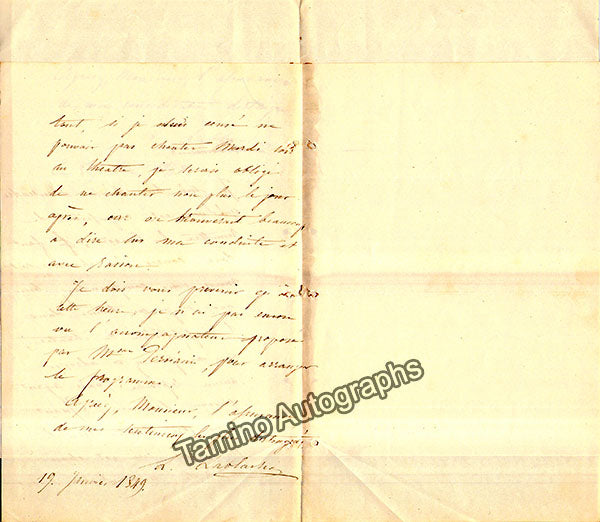 tout, si je suis censé ne
pouvoir pas chanter Mardi soir
au théatre, je serais obligé
de ne chanter non plus le jour
après, car on trouverait beaucoup
a dire sur ma conduite et
avec raison.
Je dois vous prevenir qu'à
cette heure, je n'ai pas encore
vu l'accompagnateur proposé
par Mme Persiani, pour arranger
le programme.
Agréez, Monsieur, l'assurance
de mes sentiments les plus
L. Lablache
19. Janvier 1849.
Tamino Autographs